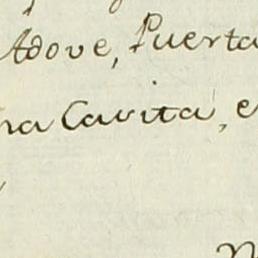 Adove, Puerta
na Cavita, e